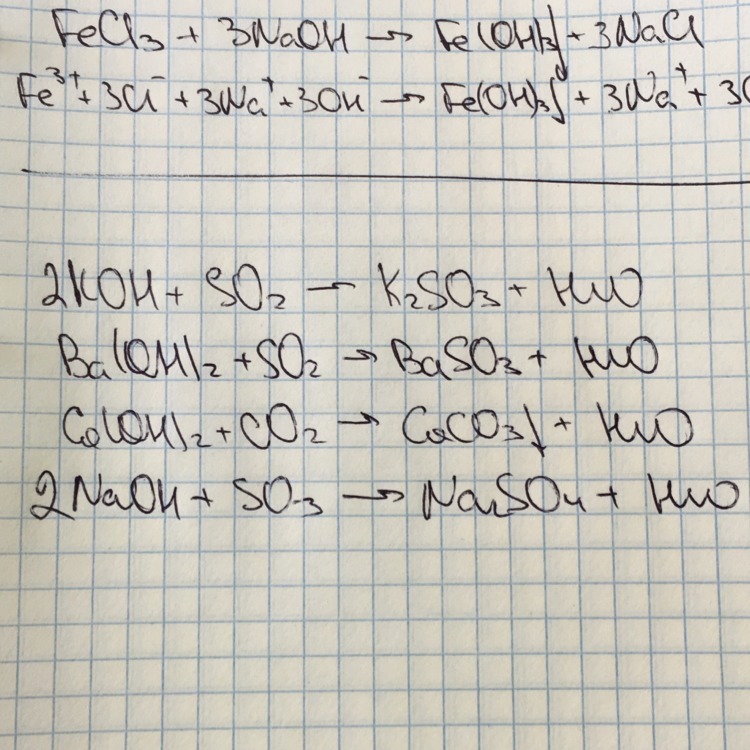 FeCl₃ + 3NaOH → Fe(OH)₃↓ + 3NaCl
Fe³⁺ + 3Cl⁻ + 3Na⁺ + 3OH⁻ → Fe(OH)₃↓ + 3Na⁺ + 3C
2KOH + SO₂ — K₂SO₃ + H₂O
Ba(OH)₂ + SO₂ → BaSO₃ + H₂O
Ca(OH)₂ + CO₂ → CaCO₃↓ + H₂O
2NaOH + SO₃ → Na₂SO₄ + H₂O